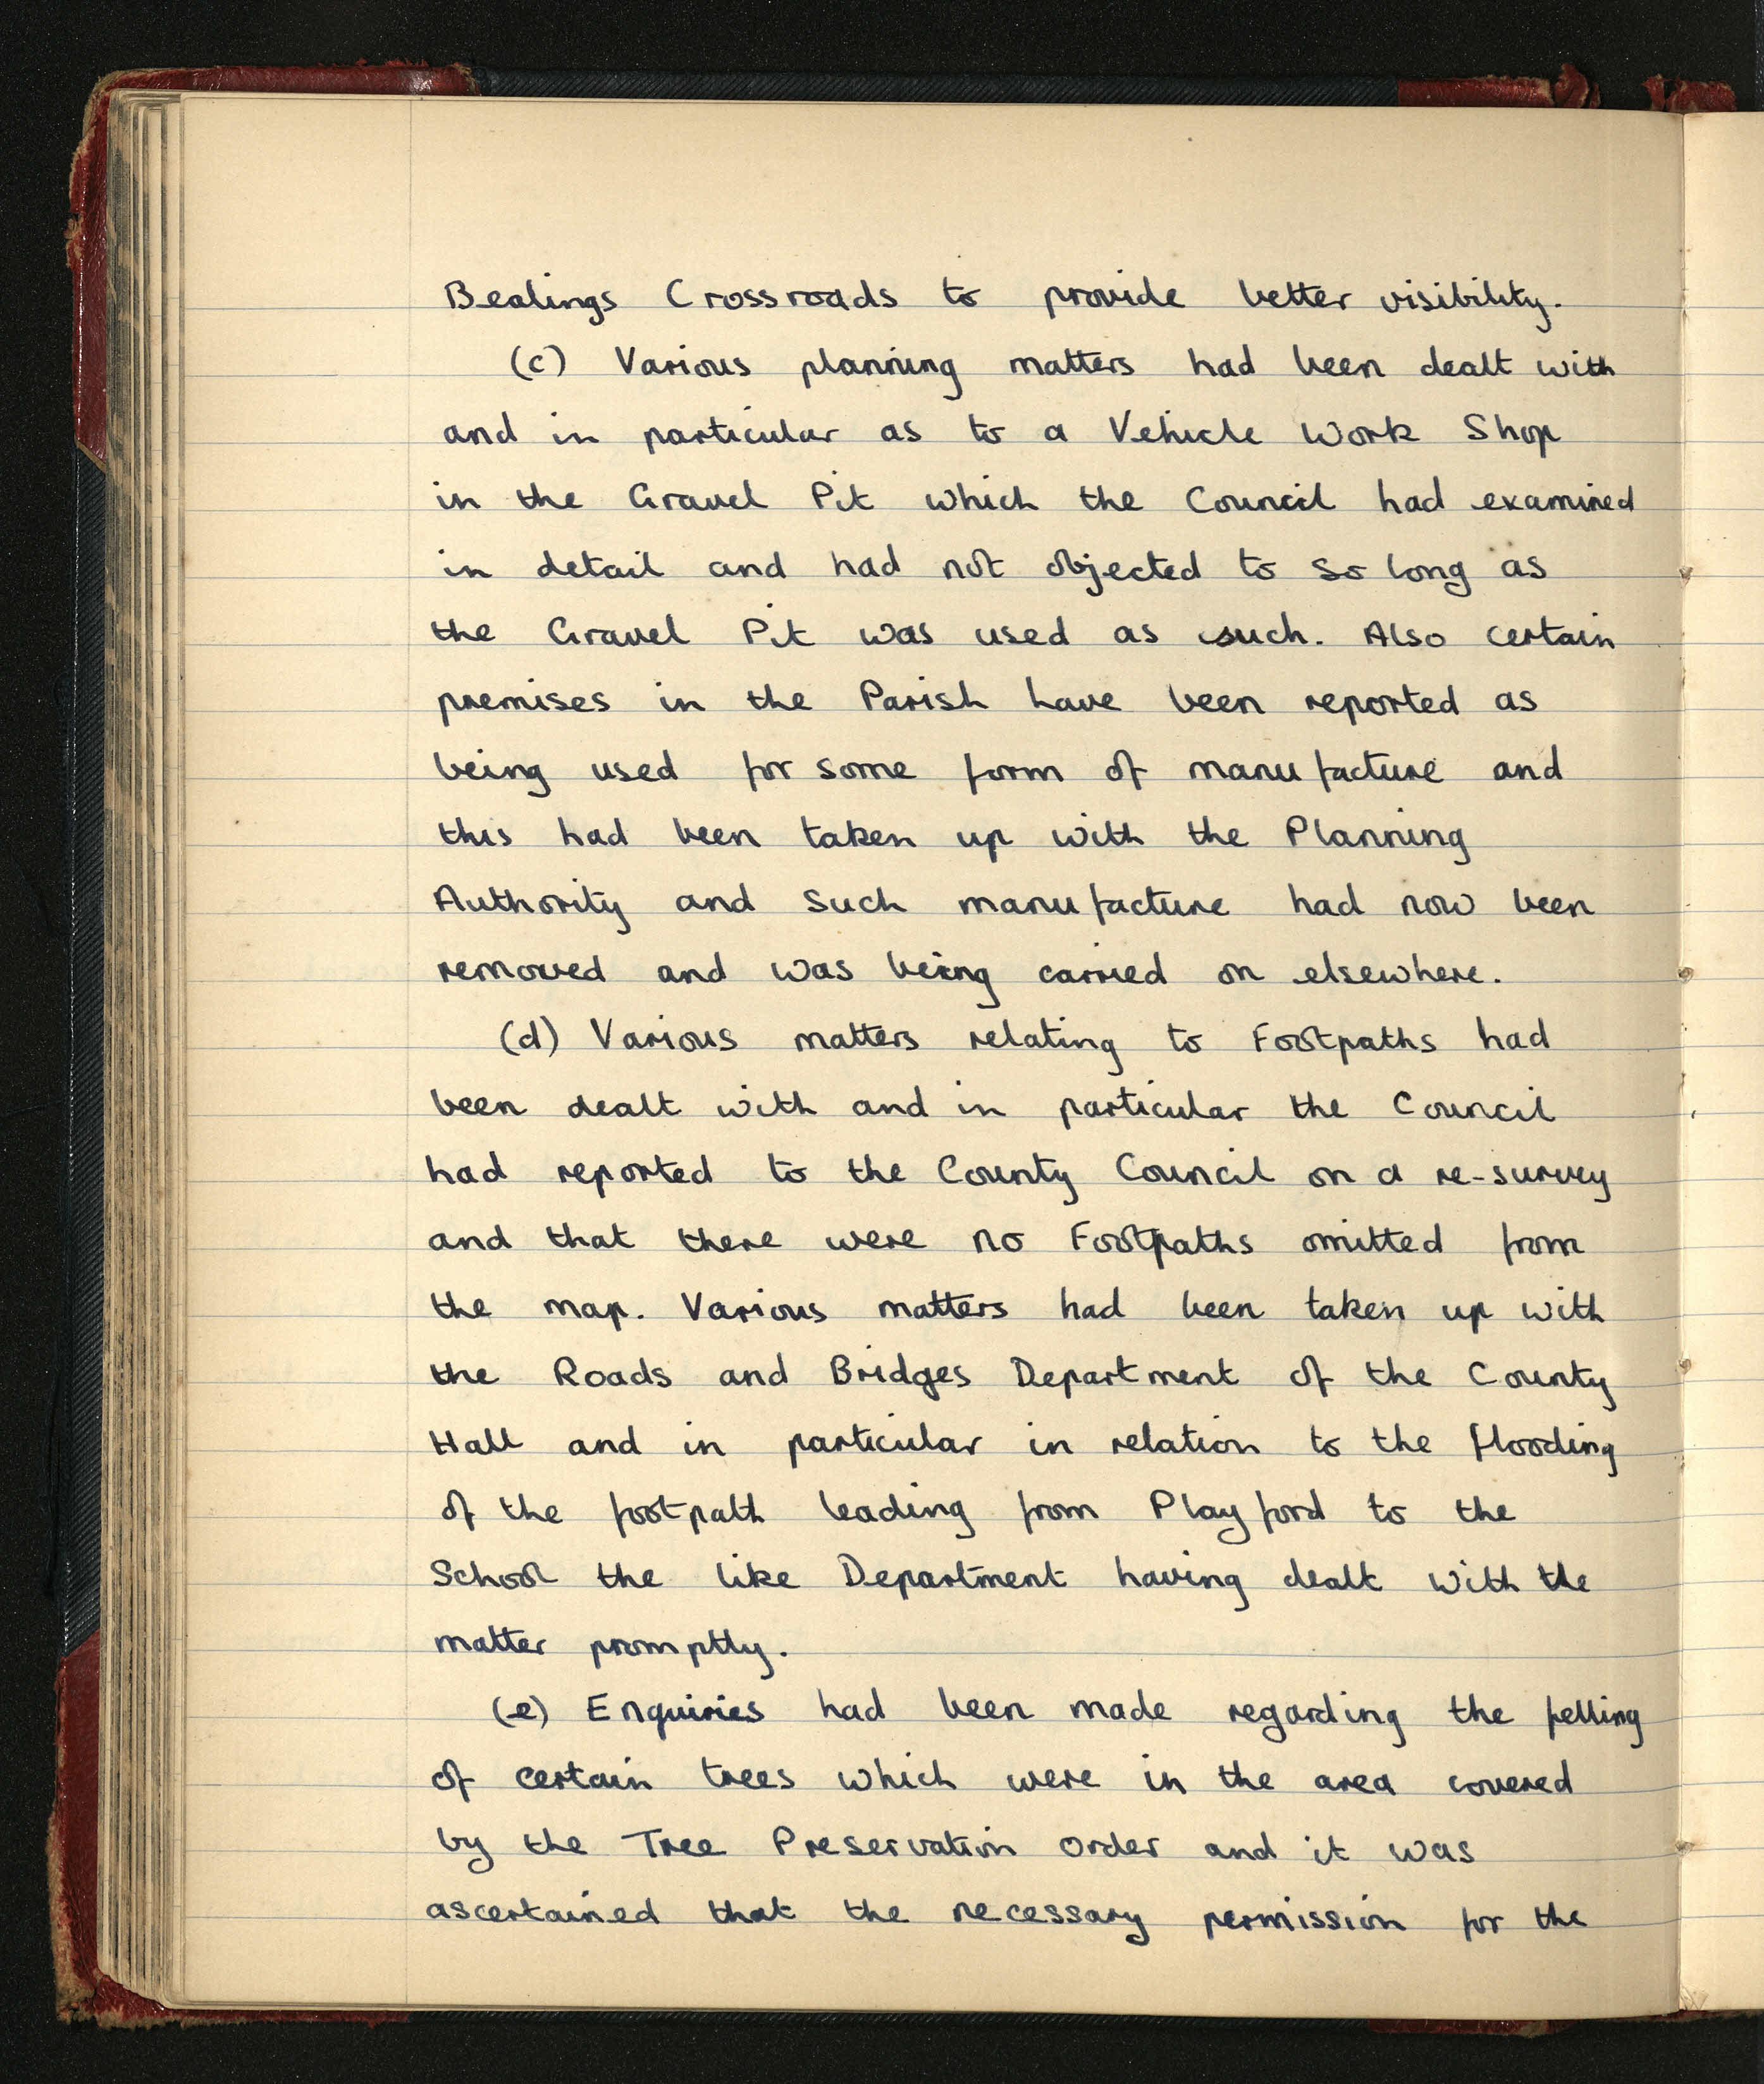 Bealings Crossroads to provide better visibility.
(c) Various planning matters had been dealt with
and in particular as to a Vehicle Work Shop
in the Gravel Pit which the Council had examined
in detail and had not objected to so long as
the Gravel Pit was used as such. Also certain
premises in the Parish have been reported as
being used for some form of manufacture and
this had been taken up with the Planning
Authority and such manufacture had now been
removed and was being carried on elsewhere.
(d) Various matters relating to Footpaths had
been dealt with and in particular the Council
had reported to the County Council on a re-survey
and that there were no Footpaths omitted from
the map. Various matters had been taken up with
the Roads and Bridges Department of the County
Hall and in particular in relation to the flooding
of the footpath leading from Playford to the
School the like Department having dealt with the
matter promptly.
(e) Enquiries had been made regarding the felling
of certain trees which were in the area covered
by the Tree Preservation Order and it was
ascertained that the necessary permission for the